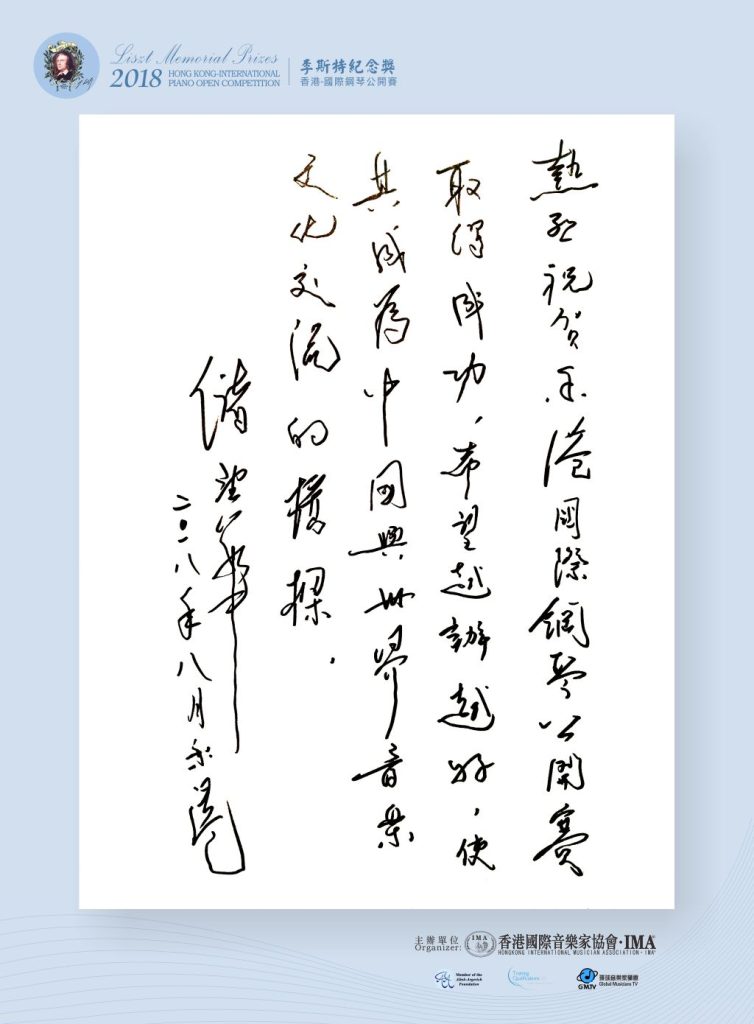 Liszt Memorial Prizes
2018 HONG KONG-INTERNATIONAL
PIANO OPEN COMPETITION
李斯特紀念獎
香港·國際鋼琴公開賽
熱烈祝贺香港國際鋼琴公開賽
取得成功，希望越辦越好，使
其成為中國與世界音樂
文化交流的橋樑．
儲望華
二〇一八年八月香港
主辦單位
Organizer:
IMA
香港國際音樂家協會·IMA
HONGKONG INTERNATIONAL MUSICIAN ASSOCIATION · IMA
Member of the
Alink-Argerich
Foundation
GMTV
環球音樂家電視
Global Musicians TV